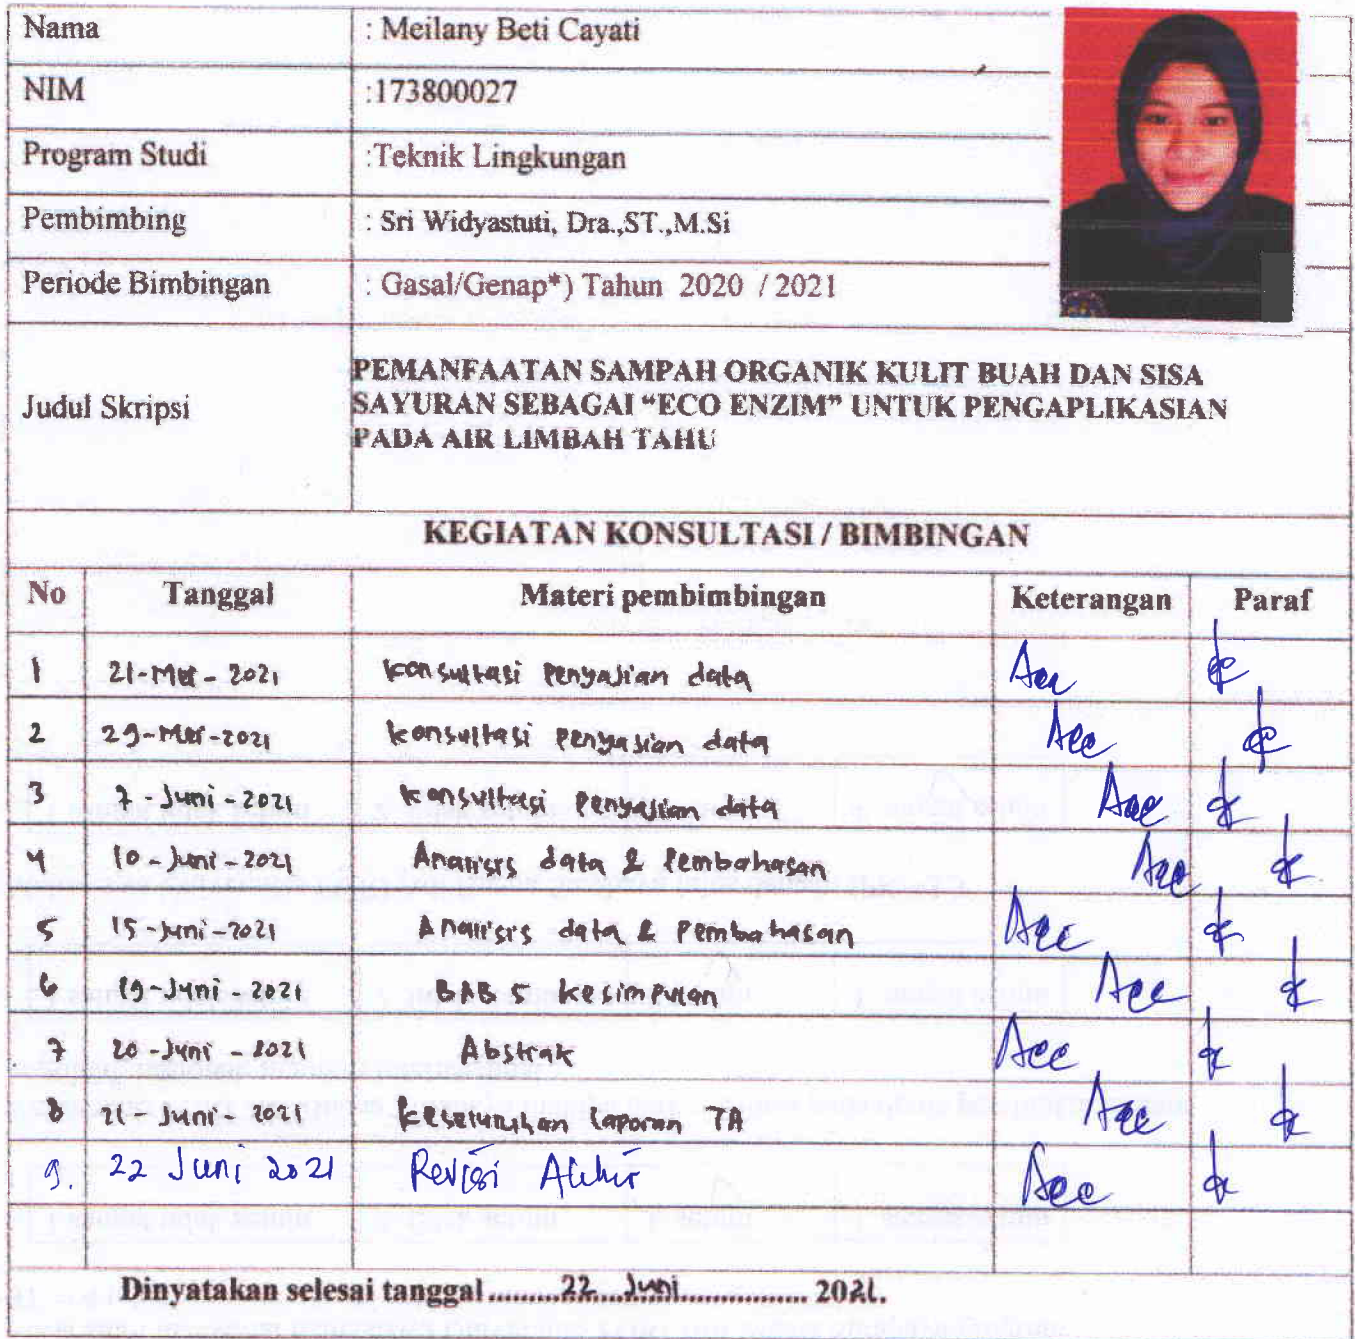 Nama : Meilany Beti Cayati
NIM :173800027
Program Studi :Teknik Lingkungan
Pembimbing : Sri Widyastuti, Dra.,ST.,M.Si
Periode Bimbingan : Gasal/Genap*) Tahun 2020 / 2021
Judul Skripsi
PEMANFAATAN SAMPAH ORGANIK KULIT BUAH DAN SISA
SAYURAN SEBAGAI “ECO ENZIM” UNTUK PENGAPLIKASIAN
PADA AIR LIMBAH TAHU
KEGIATAN KONSULTASI / BIMBINGAN
No Tanggal Materi pembimbingan Keterangan Paraf
1 21-Mei-2021 konsultasi Penyajian data Acc
2 29-Mei-2021 konsultasi penyajian data Acc
3 7-Juni-2021 konsultasi penyajian data Acc
4 10-Juni-2021 Analisis data & Pembahasan Acc
5 15-Juni-2021 Analisis data & Pembahasan Acc
6 19-Juni-2021 BAB 5 kesimpulan Acc
7 20-Juni-2021 Abstrak Acc
8 21-Juni-2021 keseluruhan laporan TA Acc
9. 22 Juni 2021 Revisi Akhir Acc
Dinyatakan selesai tanggal ........22 Juni........ 2021.